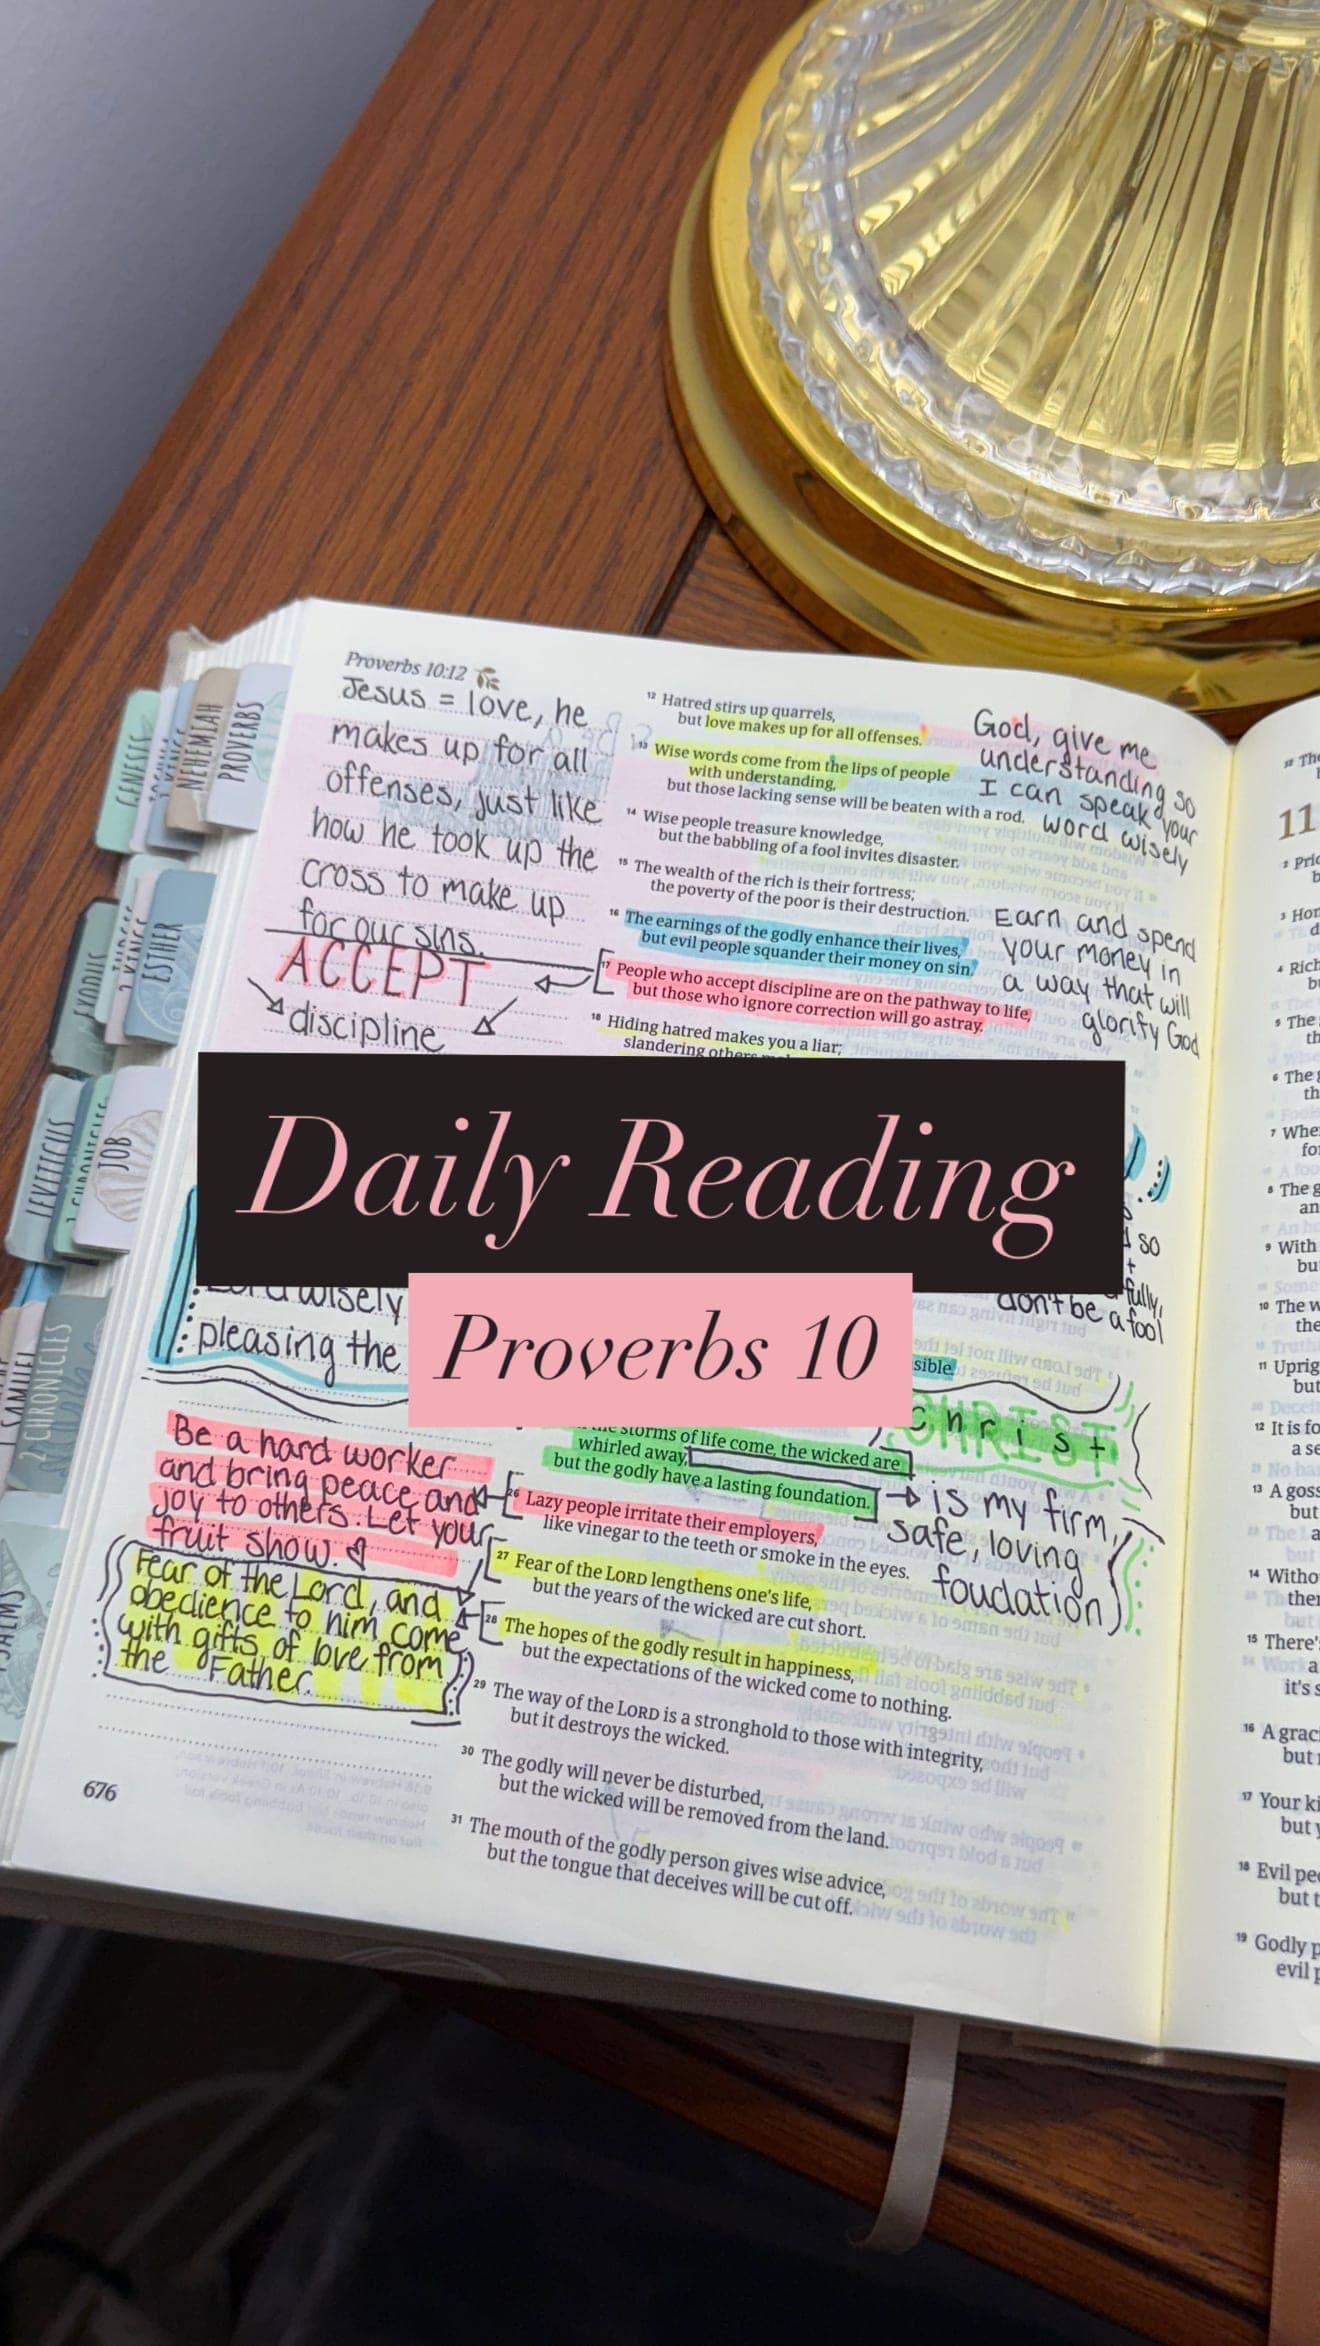 Proverbs 10:12
Jesus = love, he
makes up for all
offenses, just like
how he took up the
cross to make up
for our sins.
ACCEPT
discipline
12 Hatred stirs up quarrels,
but love makes up for all offenses.
13 Wise words come from the lips of people
with understanding,
but those lacking sense will be beaten with a rod.
14 Wise people treasure knowledge,
but the babbling of a fool invites disaster.
15 The wealth of the rich is their fortress;
the poverty of the poor is their destruction.
16 The earnings of the godly enhance their lives,
but evil people squander their money on sin.
17 People who accept discipline are on the pathway to life,
but those who ignore correction will go astray.
18 Hiding hatred makes you a liar;
slandering others
God, give me
understanding so
I can speak your
word wisely
Earn and spend
your money in
a way that will
glorify God
Daily Reading
Proverbs 10
wisely
pleasing the
so
fully,
don't be a fool
sible.
Christ
CHRIST
storms of life come, the wicked are
whirled away,
but the godly have a lasting foundation.
is my firm,
safe, loving
foudation
Be a hard worker
and bring peace and
joy to others. Let your
fruit show.
26 Lazy people irritate their employers,
like vinegar to the teeth or smoke in the eyes.
27 Fear of the LORD lengthens one's life,
but the years of the wicked are cut short.
28 The hopes of the godly result in happiness,
but the expectations of the wicked come to nothing.
29 The way of the LORD is a stronghold to those with integrity,
but it destroys the wicked.
30 The godly will never be disturbed,
but the wicked will be removed from the land.
31 The mouth of the godly person gives wise advice,
but the tongue that deceives will be cut off.
Fear of the Lord, and
obedience to him come
with gifts of love from
the Father.
676
GENESIS
NEHEMIAH
PROVERBS
EXODUS
ESTHER
LEVITICUS
JOB
SAMUEL
2 CHRONICLES
PSALMS
11
3 Hor
4 Rich
5 The
th
6 The
th
7 Whe
fo
8 The g
an
9 With
bu
10 The w
the
11 Uprig
but
12 It is fo
a se
13 A goss
but
14 Witho
ther
15 There's
a
it's s
16 A grac
but
17 Your ki
but y
18 Evil pe
but t
19 Godly p
evil p